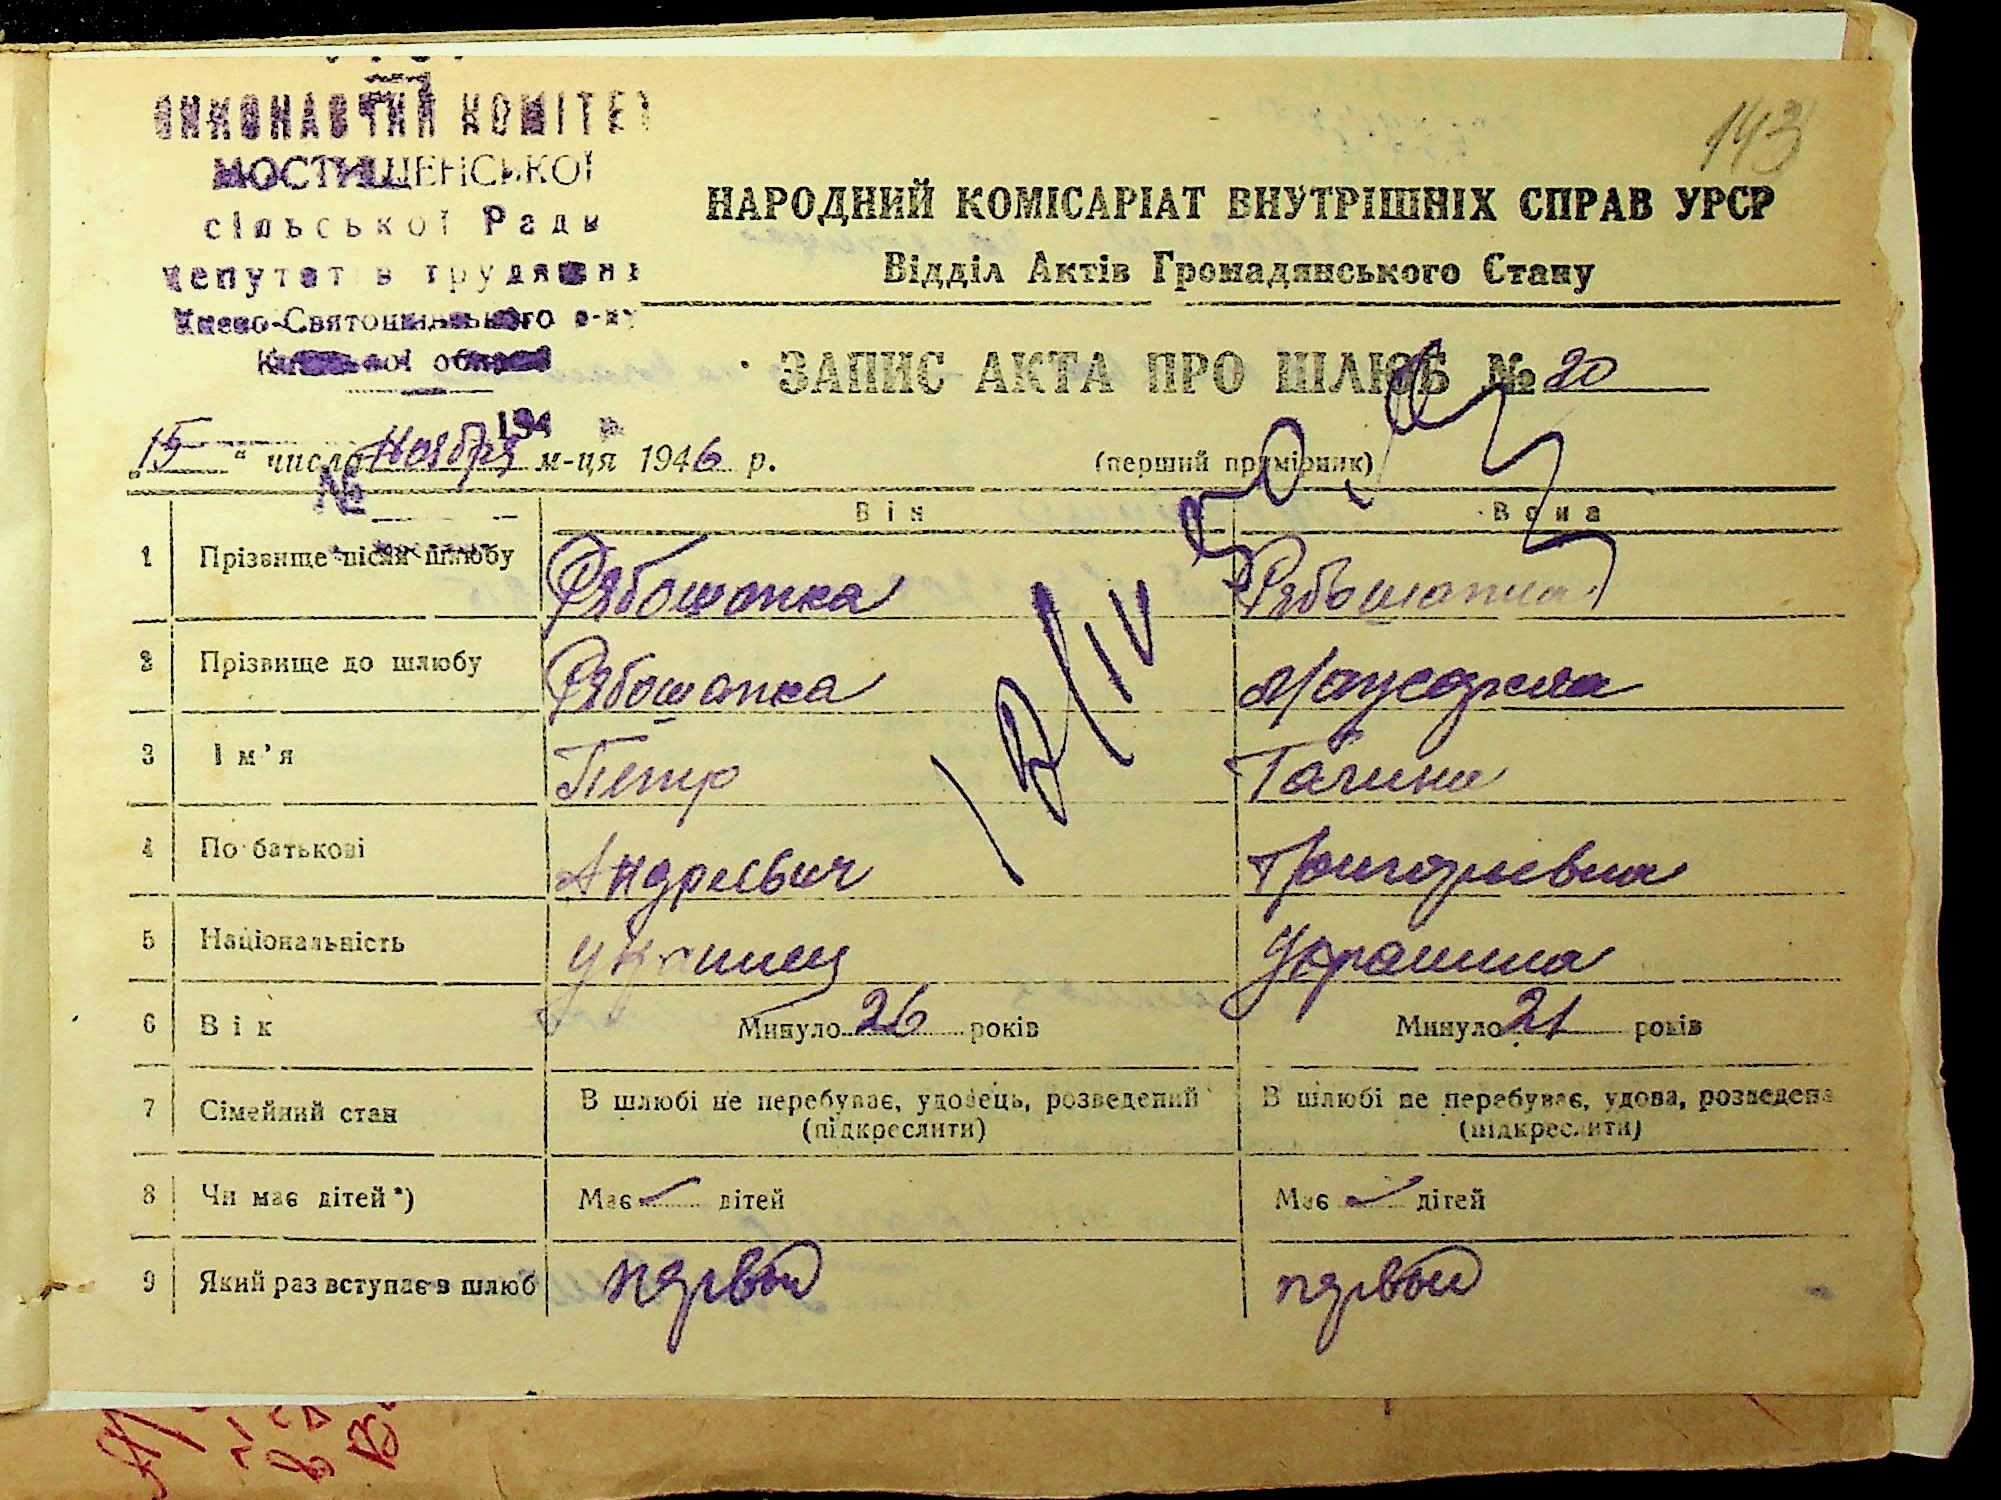 УРСР
ВИКОНАВЧИЙ КОМІТЕТ
МОСТИЩЕНСЬКОЇ
сільської Ради
депутатів трудящих
Києво-Святошинського р-ну
Київської області
194 р.
№
143
НАРОДНИЙ КОМІСАРІАТ ВНУТРІШНІХ СПРАВ УРСР
Відділ Актів Громадянського Стану
ЗАПИС АКТА ПРО ШЛЮБ № 20
„15“ число Ноября м-ця 1946 р. (перший примірник)
Він Вона
1 Прізвище після шлюбу Рябошапка Рябошапка
2 Прізвище до шлюбу Рябошапка
3 Ім’я Петр Галина
4 По батькові Андреевич Григорьевна
5 Національність Украинец Украинка
6 Вік Минуло 26 років Минуло 21 років
7 Сімейний стан В шлюбі не перебуває, удовець, розведений (підкреслити) В шлюбі не перебуває, удова, розведена (підкреслити)
8 Чи має дітей*) Має дітей Має дітей
9 Який раз вступає в шлюб первый первый